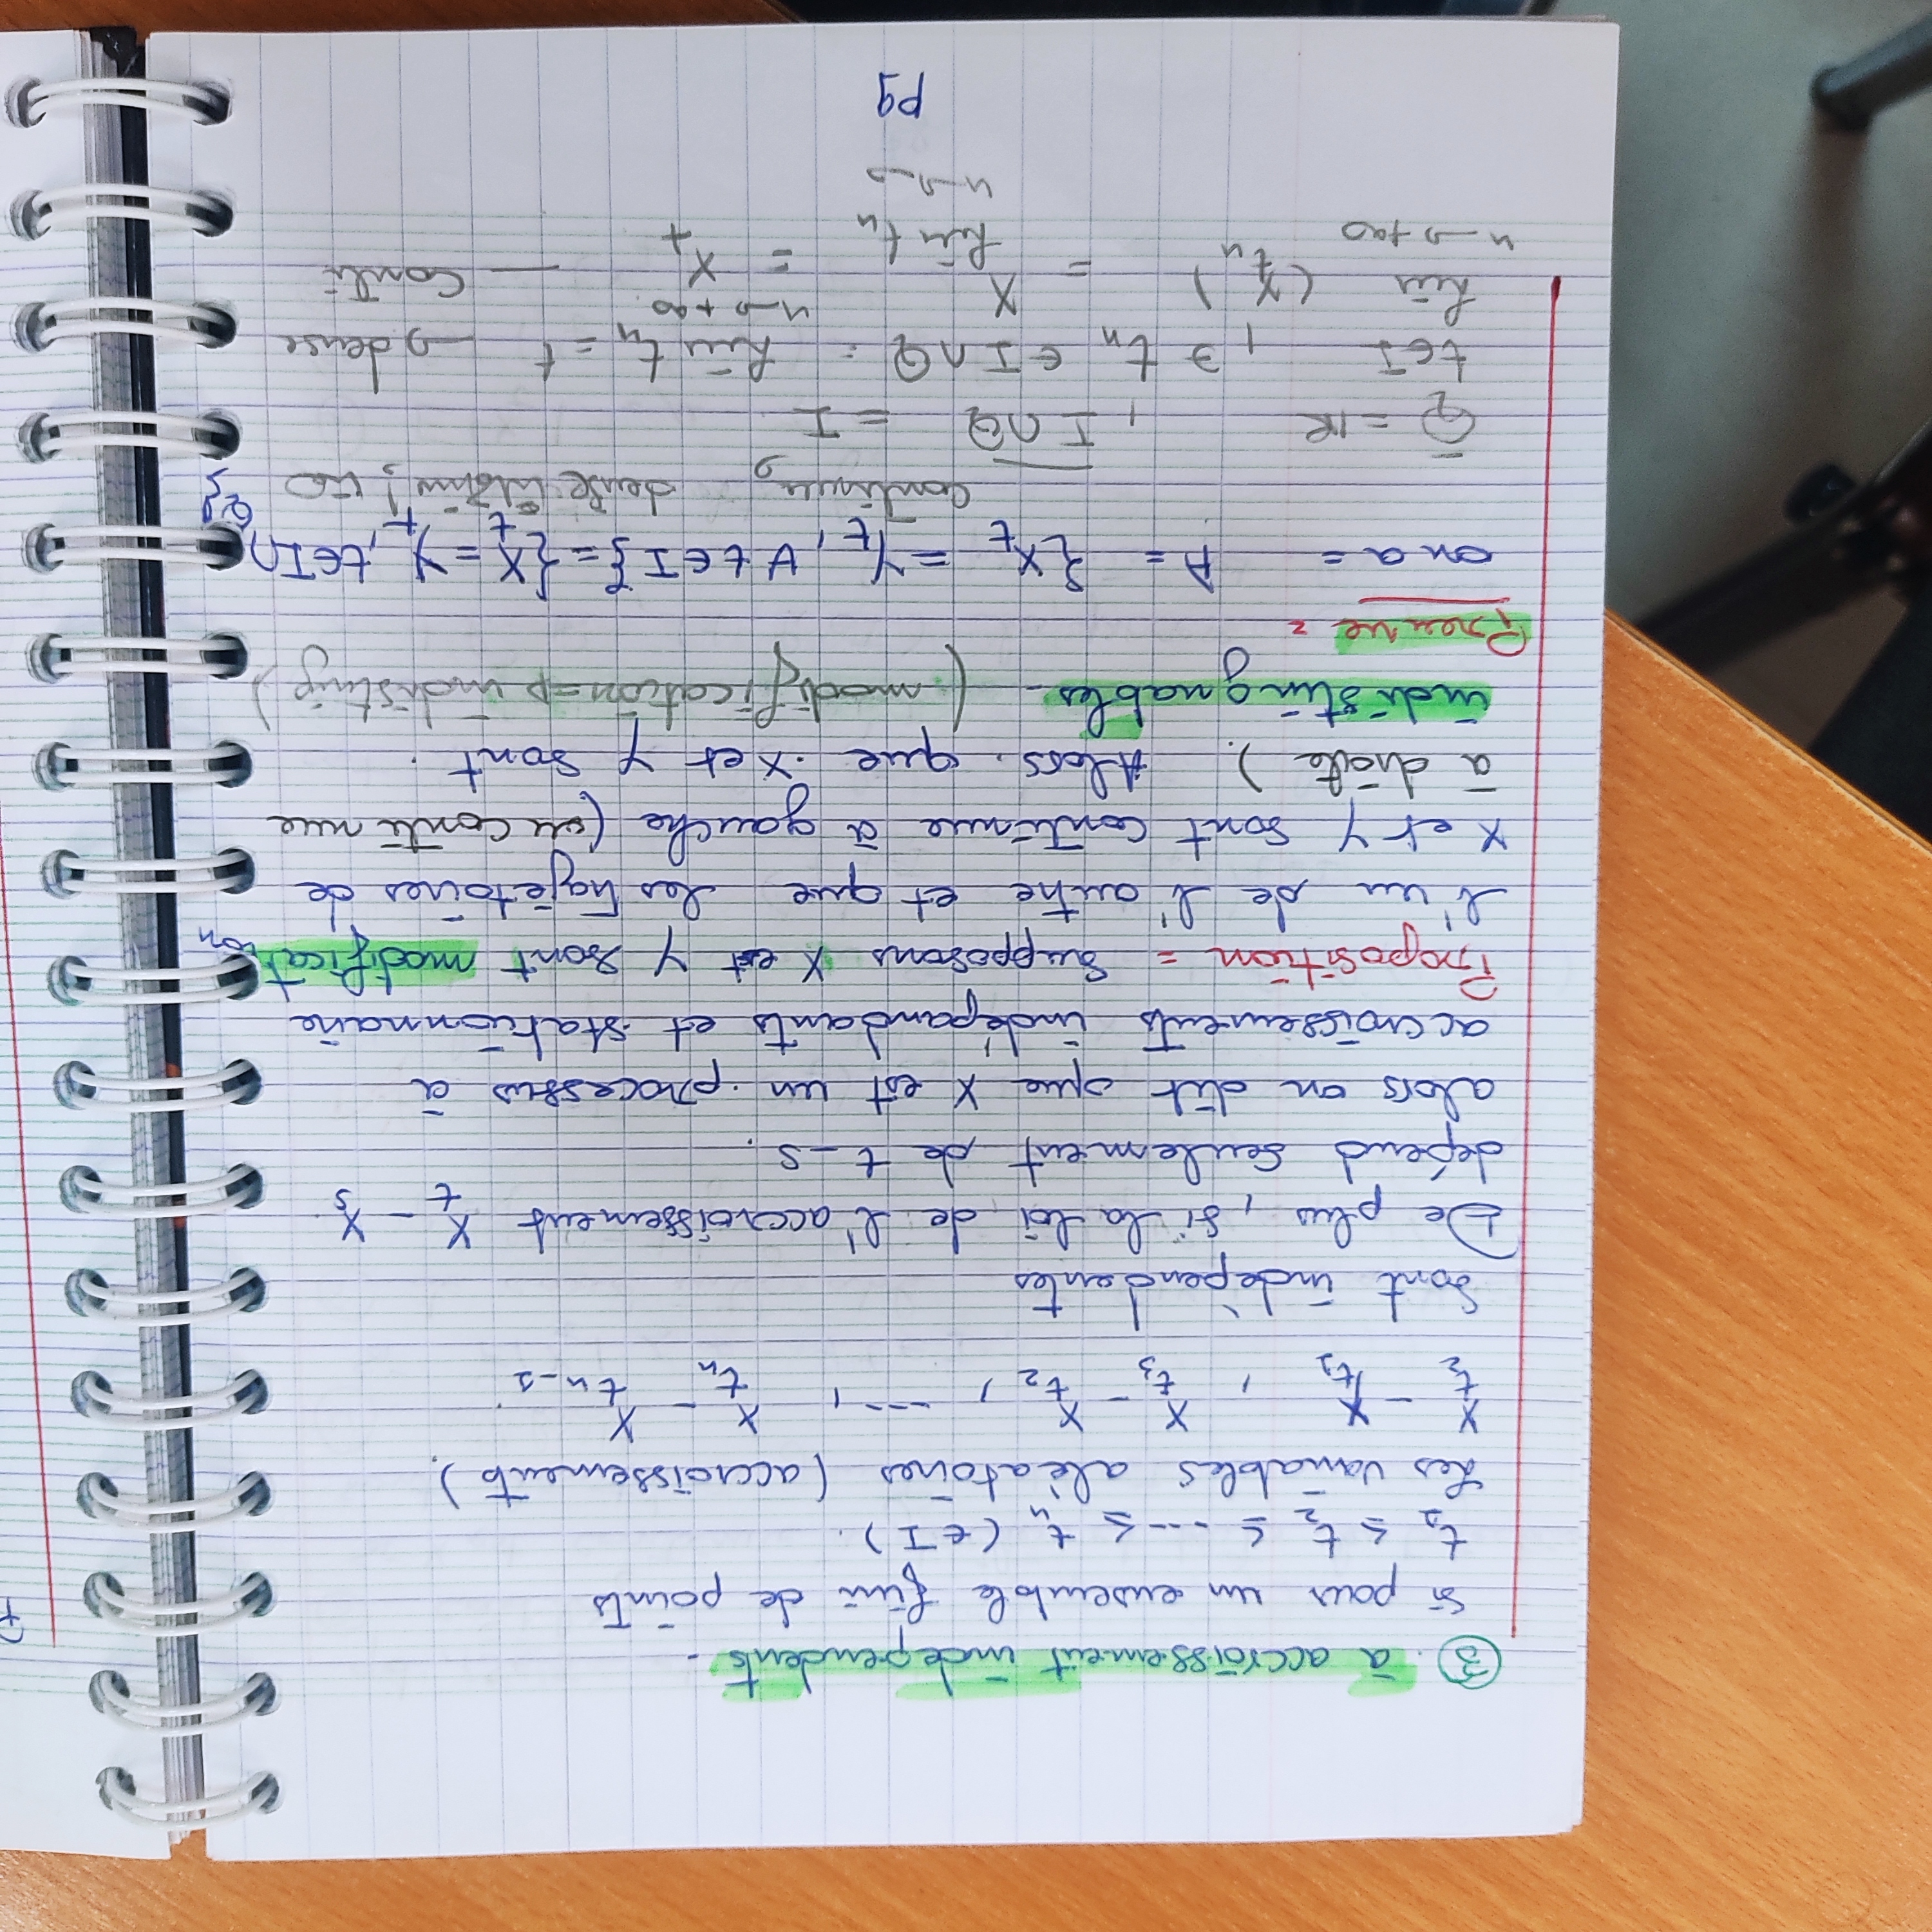 ③. à accroissement indépendents.
Si pour un ensemble fini de points
t₁ ≤ t₂ ≤ ---- ≤ tₙ (∈ I).
Les variables alèatoires (accroissements).
X_t₂ - X_t₁ , X_t₃ - X_t₂ , ---, X_tₙ - X_tₙ₋₁.
Sont indèpendantes
De plus, si la loi de l'accroissement X_t - X_s
dépend seulement de t-s.
alors on dit que X est un processus à
accroissements indépandants et stationnaire
Proposition = Supposons X et Y sont modification
l'un de l'autre et que les trajetoires de
X et Y sont continue à gauche (ou continue
à droite). Alors que X et Y sont.
indistinguables- (modification ⇒ indisting)
Preuve =
on a = A = {X_t = Y_t, ∀ t ∈ I} = {X_t = Y_t, t ∈ I ∩ Q}
continue, dense
Q̄ = IR , \overline{I ∩ Q} = I
t ∈ I , ∃ tₙ ∈ I ∩ Q = lim tₙ = t → dense
n → +∞
lim (X_tₙ) = X_{lim tₙ} = X_t — conti
n → +∞
P9
P